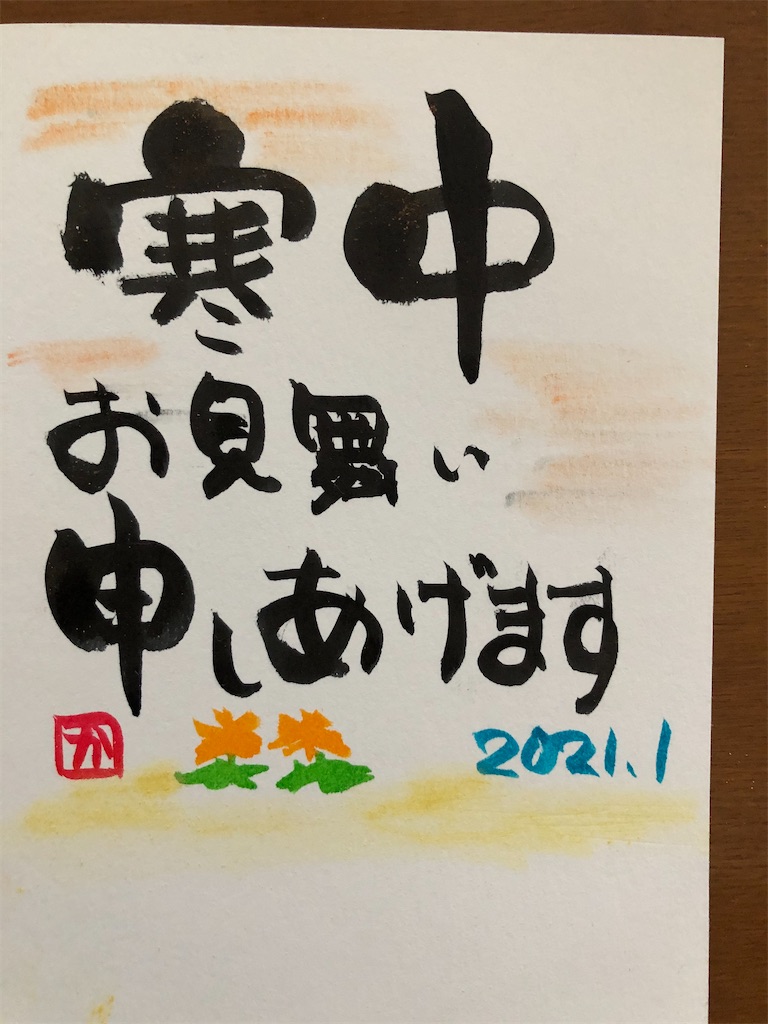 寒中
お見舞い
申しあげます
か 2021.1